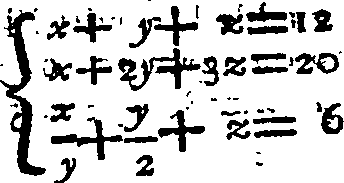 x + y + z = 12
x + 2y + 3z = 20
x/y + y/2 + z = 6